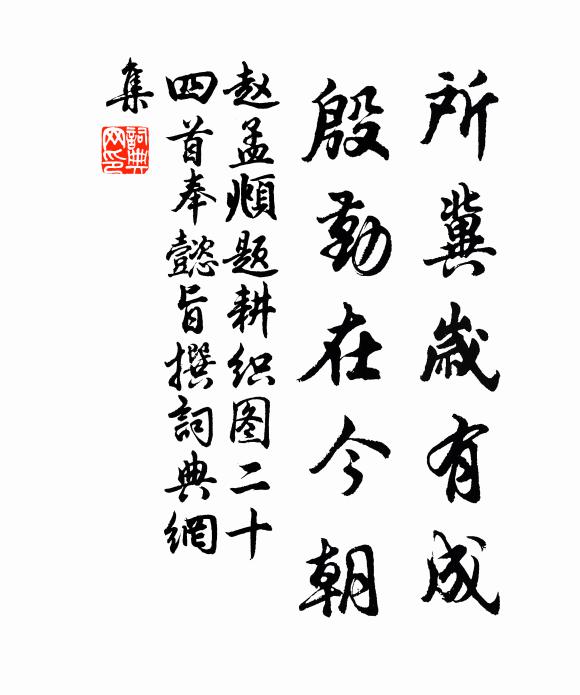 所冀歲有成
殷勤在今朝
赵孟頫题耕织图二十
四首奉懿旨撰詞典網
集
詞典
网印